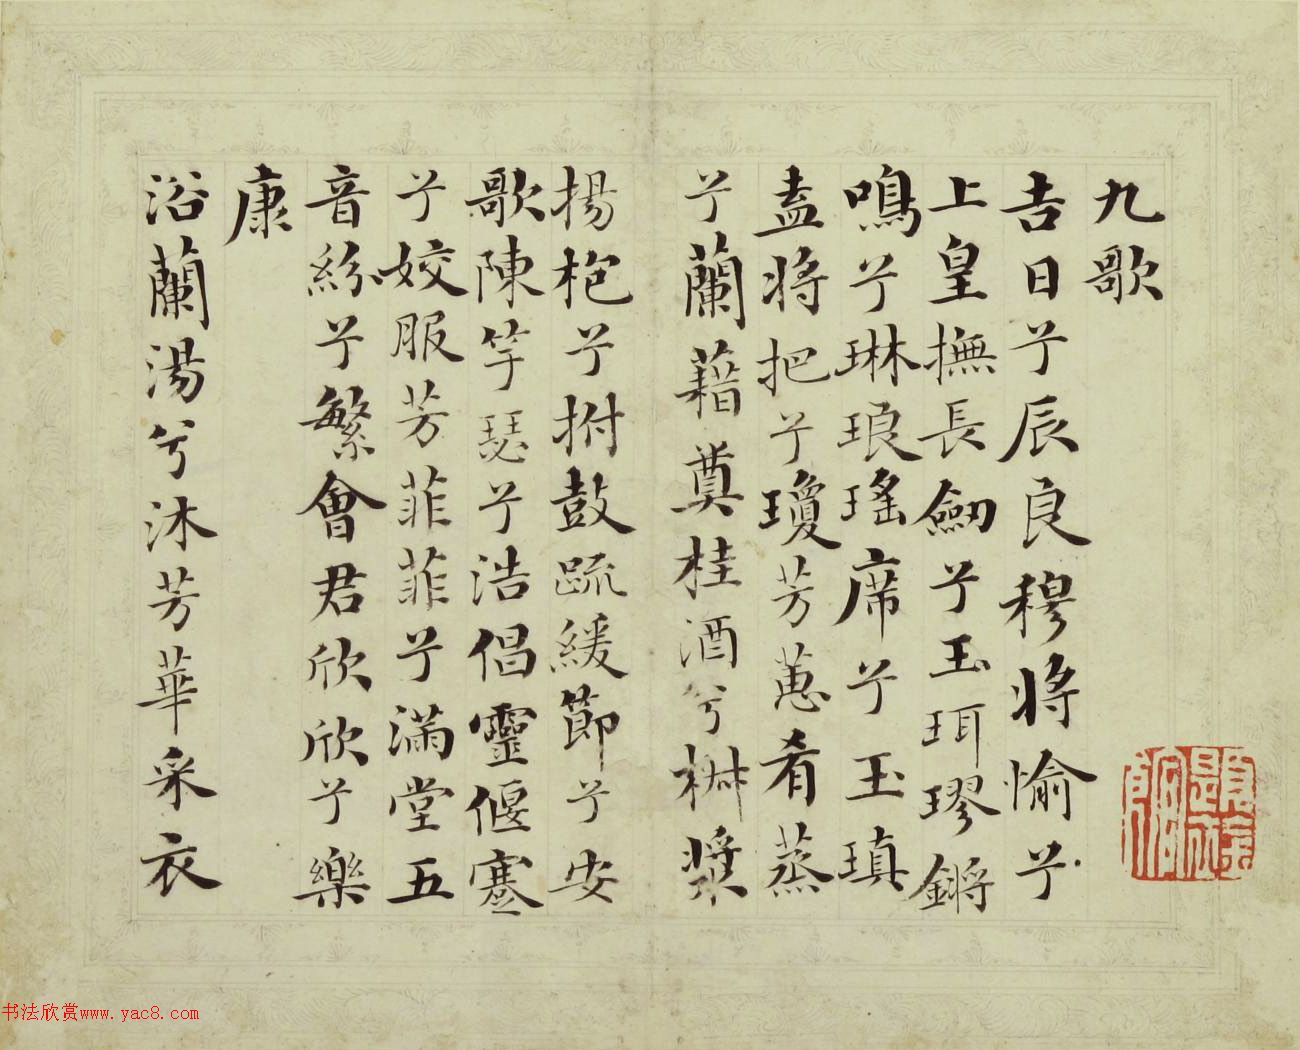 九歌
吉日兮辰良穆將愉兮
上皇撫長劒兮玉珥璆鏘
鳴兮琳琅瑤席兮玉瑱
盍將把兮瓊芳蕙肴蒸
兮蘭藉奠桂酒兮椒漿
揚枹兮拊鼓疏緩節兮安
歌陳竽瑟兮浩倡靈偃蹇
兮姣服芳菲菲兮滿堂五
音紛兮繁會君欣欣兮樂
康
浴蘭湯兮沐芳華采衣
书法欣赏www.yac8.com